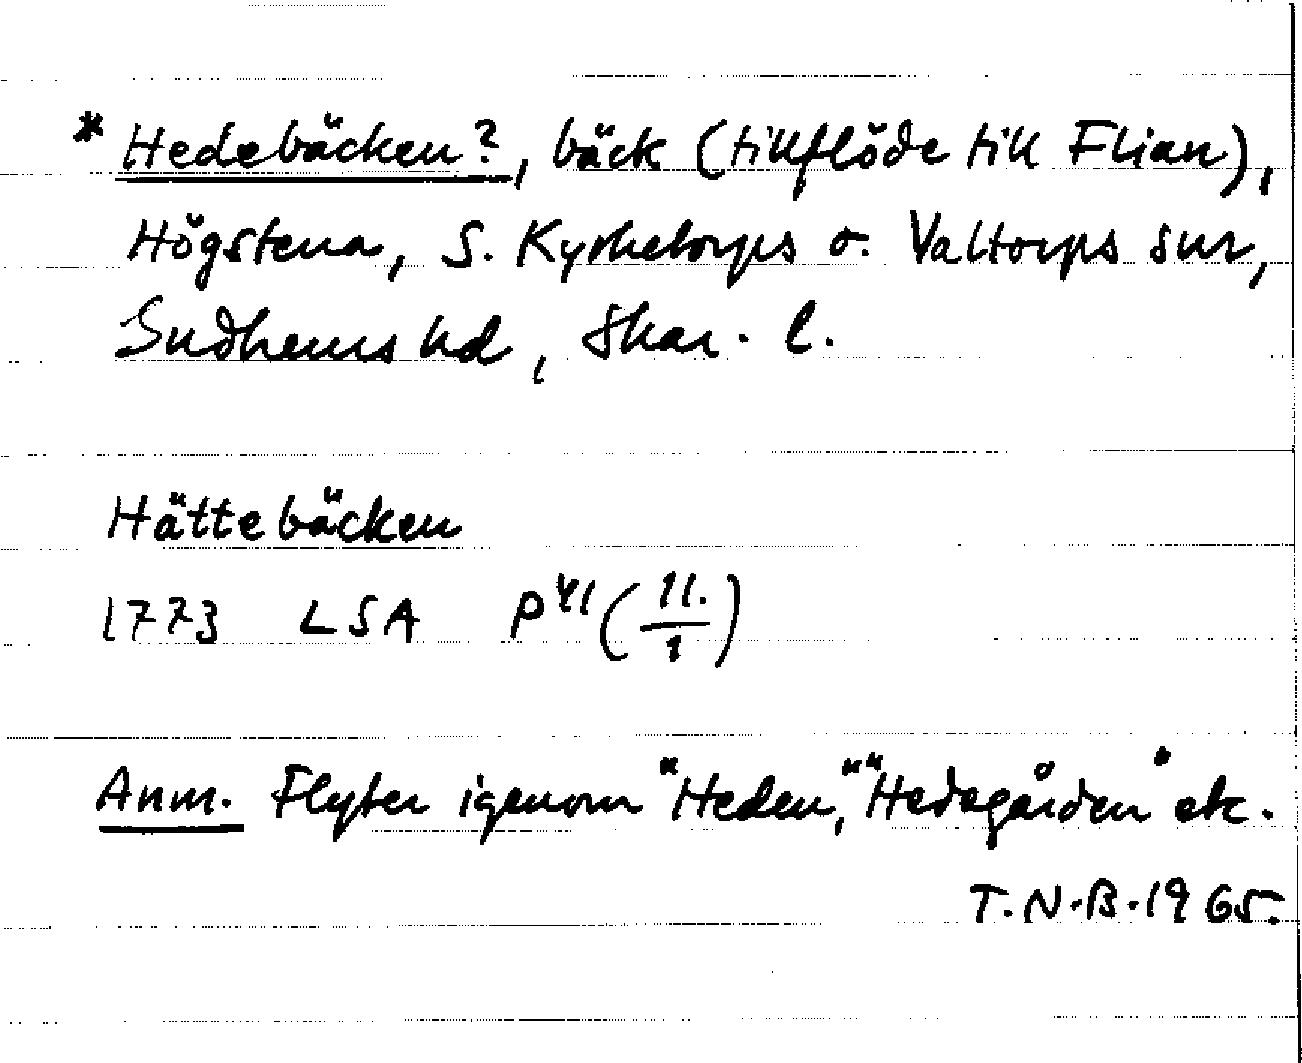 * Hedebäcken?, bäck (tillflöde till Flian),
Högstena, S. Kyrketorps o. Valtorps snr,
Gudhems hd, Skar. l.
Hättebäcken
1773 LSA P41 (11./1)
Anm. Flyter igenom "Heden," "Hedegården" etc.
T.N.B. 1965.